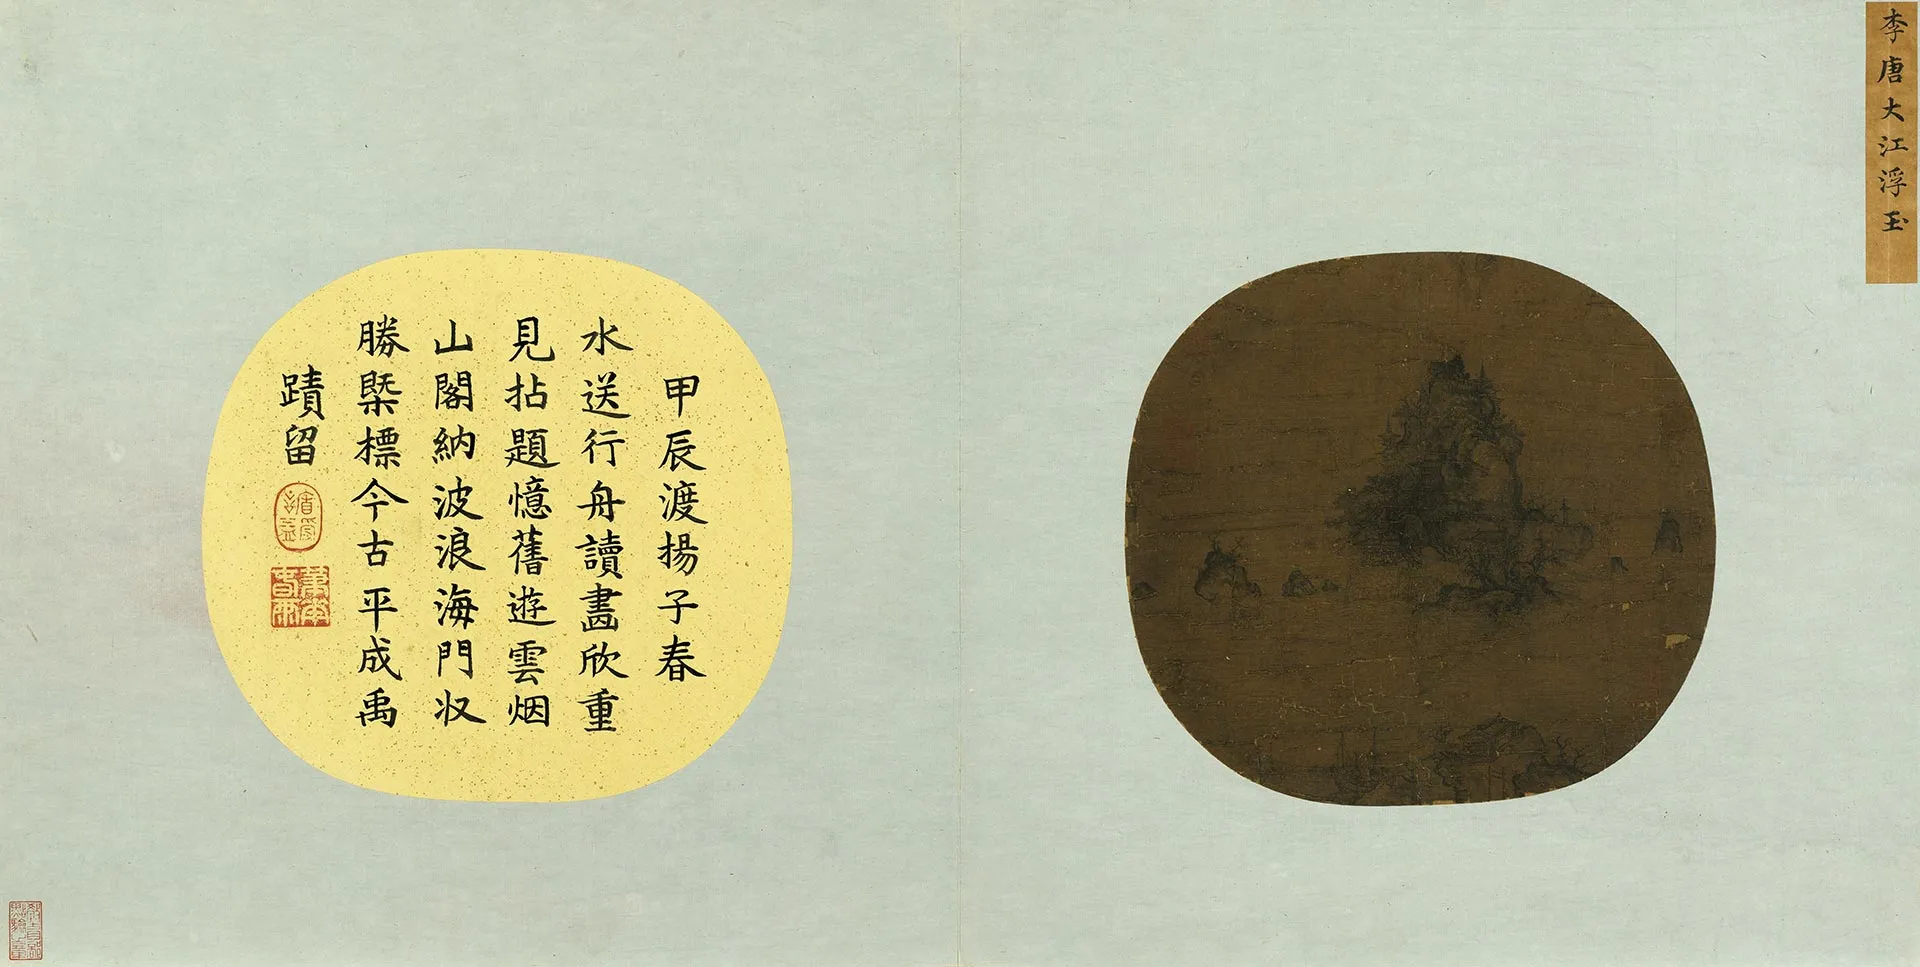 李唐大江浮玉
甲辰渡揚子春
水送行舟讀畫欣重
見拈題憶舊遊雲烟
山閣納波浪海門収
勝槩標今古平成禹
蹟留